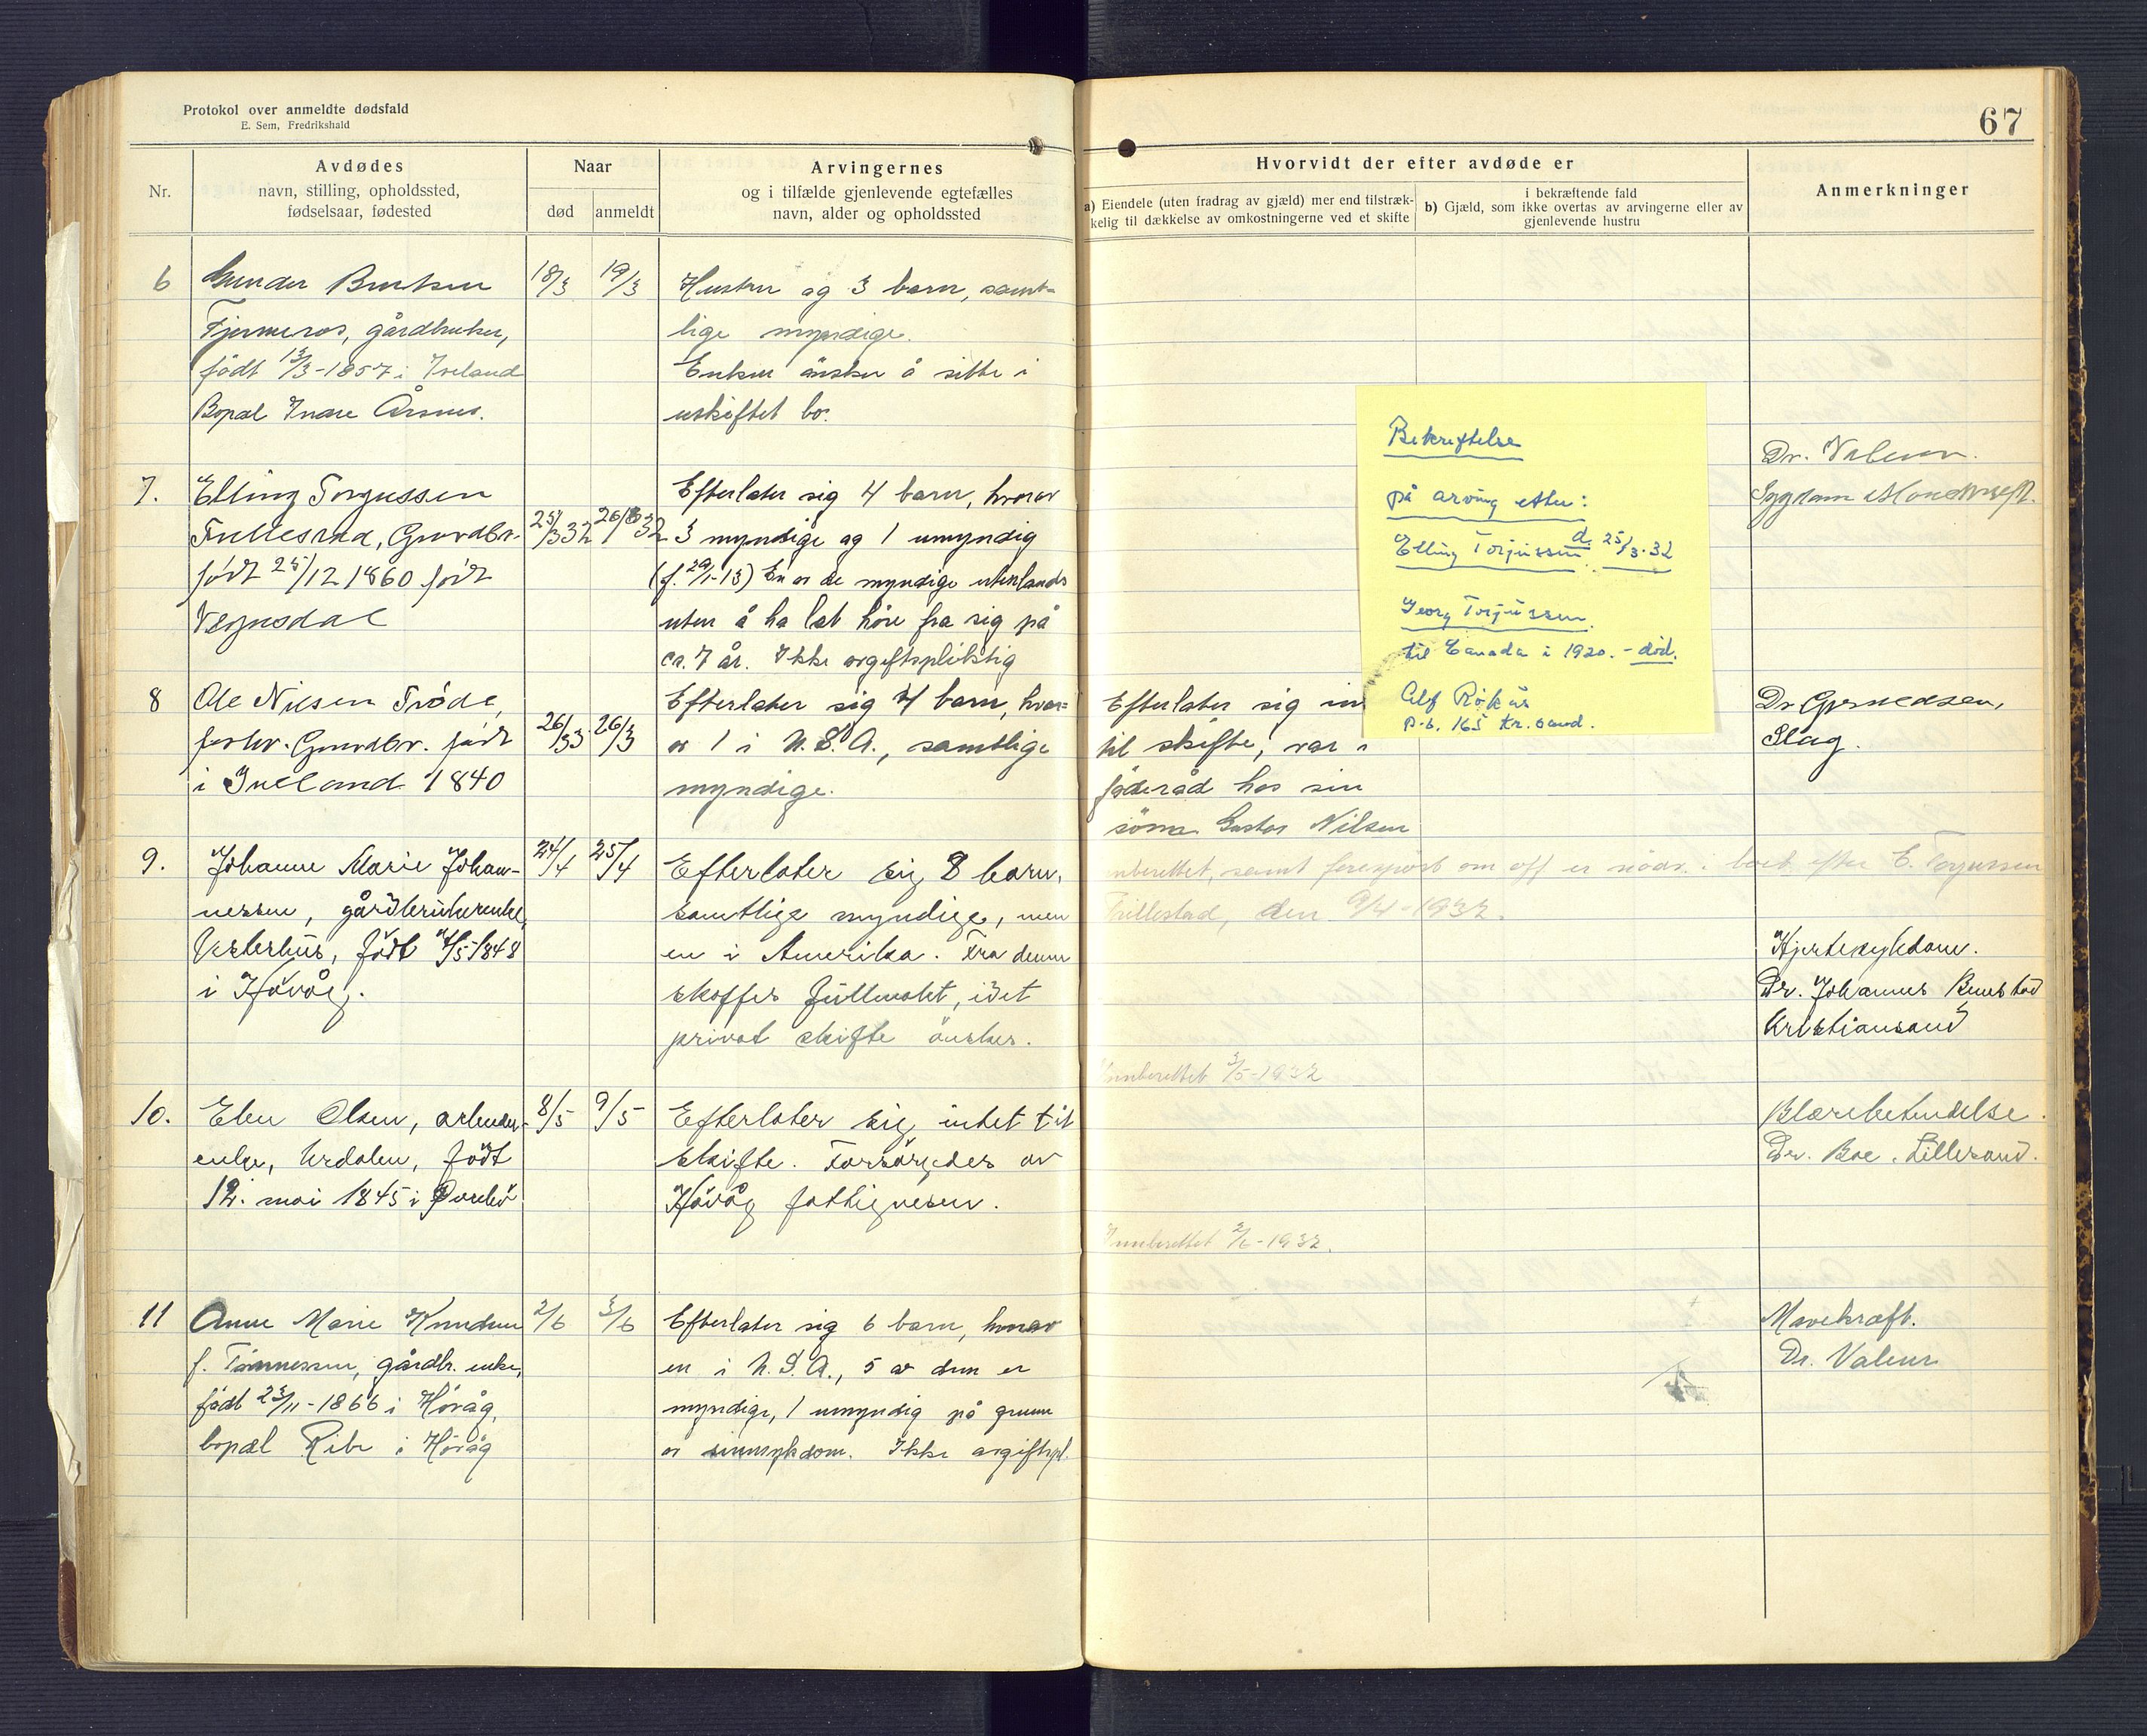 Protokol over anmeldte dødsfald
E. Sem, Fredrikshald
67
Nr.
Avdødes
navn, stilling, opholdssted,
fødselsaar, fødested
Naar
død
anmeldt
Arvingernes
og i tilfælde gjenlevende egtefælles
navn, alder og opholdssted
Hvorvidt der efter avdøde er
a) Eiendele (uten fradrag av gjæld) mer end tilstræk-
kelig til dækkelse av omkostningerne ved et skifte
i bekræftende fald
b) Gjæld, som ikke overtas av arvingerne eller av
gjenlevende hustru
Anmerkninger
6
Gunder
gårdbruker,
født 13/3-1857 i Iveland
Bopæl Indre Årsnes.
18/3
19/3
Hustru og 3 barn, samt-
lige myndige.
Enken ønsker å sitte i
uskiftet bo.
7.
Elling Torgussen
Gaardbr.
født 25/12 1860 født
Vegusdal
25/3 32
26/3 32
Efterlater sig 4 barn, hvorav
3 myndige og 1 umyndig
(f. 29/1-13) En av de myndige utenlands
uten å ha lat høre fra sig på
ca. 7 år. Ikke avgiftspliktig
Dr. Valeur.
8
Ole Nilsen Tröde,
forhv. Gaardbr. født
i Iveland 1840
26/3
26/3
Efterlater sig 4 barn, hvor-
av 1 i U.S.A., samtlige
myndige.
Efterlater sig in
til skifte, var
föderåd hos sin
sönn Gustav Nilsen
Slag.
Bekreftelse
på arving etter:
Elling Torjussen d. 25/3.32
Georg Torjussen
til Canada i 1920. - död.
Alf Rökås
p.b. 165 Kr.sand.
9.
Johanne Marie Johan-
nessen, gårdbrukerenke,
Vesterhus, født 4/5 1848
i Høvåg.
24/4
25/4
Efterlater sig 8 barn,
samtlige myndige, men
en i Amerika. Fra denne
skaffes fullmakt, idet
privat skifte ønskes.
innberettet, samt forespurt om off er nödv. i boet efter E. Torjussen
den 9/4-1932.
Hjertesykdom.
Dr. Johannes Benestad
Kristiansand
Innberettet 3/5-1932
10.
Elen Olsen, arbeider-
enke, Urdalen, født
12. mai 1845 i
8/5
9/5
Efterlater sig intet til
skifte. Forsørgedes av
Høvåg fattigvesen.
Blærebetendelse.
Dr. Boe, Lillesand.
Innberettet 2/6-1932.
11
Anne Marie Knudsen
f. Tönnessen, gårdbr. enke,
født 23/11-1866 i Høvåg,
bopæl Ribe i Høvåg
2/6
3/6
Efterlater sig 6 barn, hvorav
en i U.S.A., 5 av dem er
myndige, 1 umyndig på grunn
av sinnsykdom. Ikke avgiftspl.
Mavekræft.
Dr. Valeur